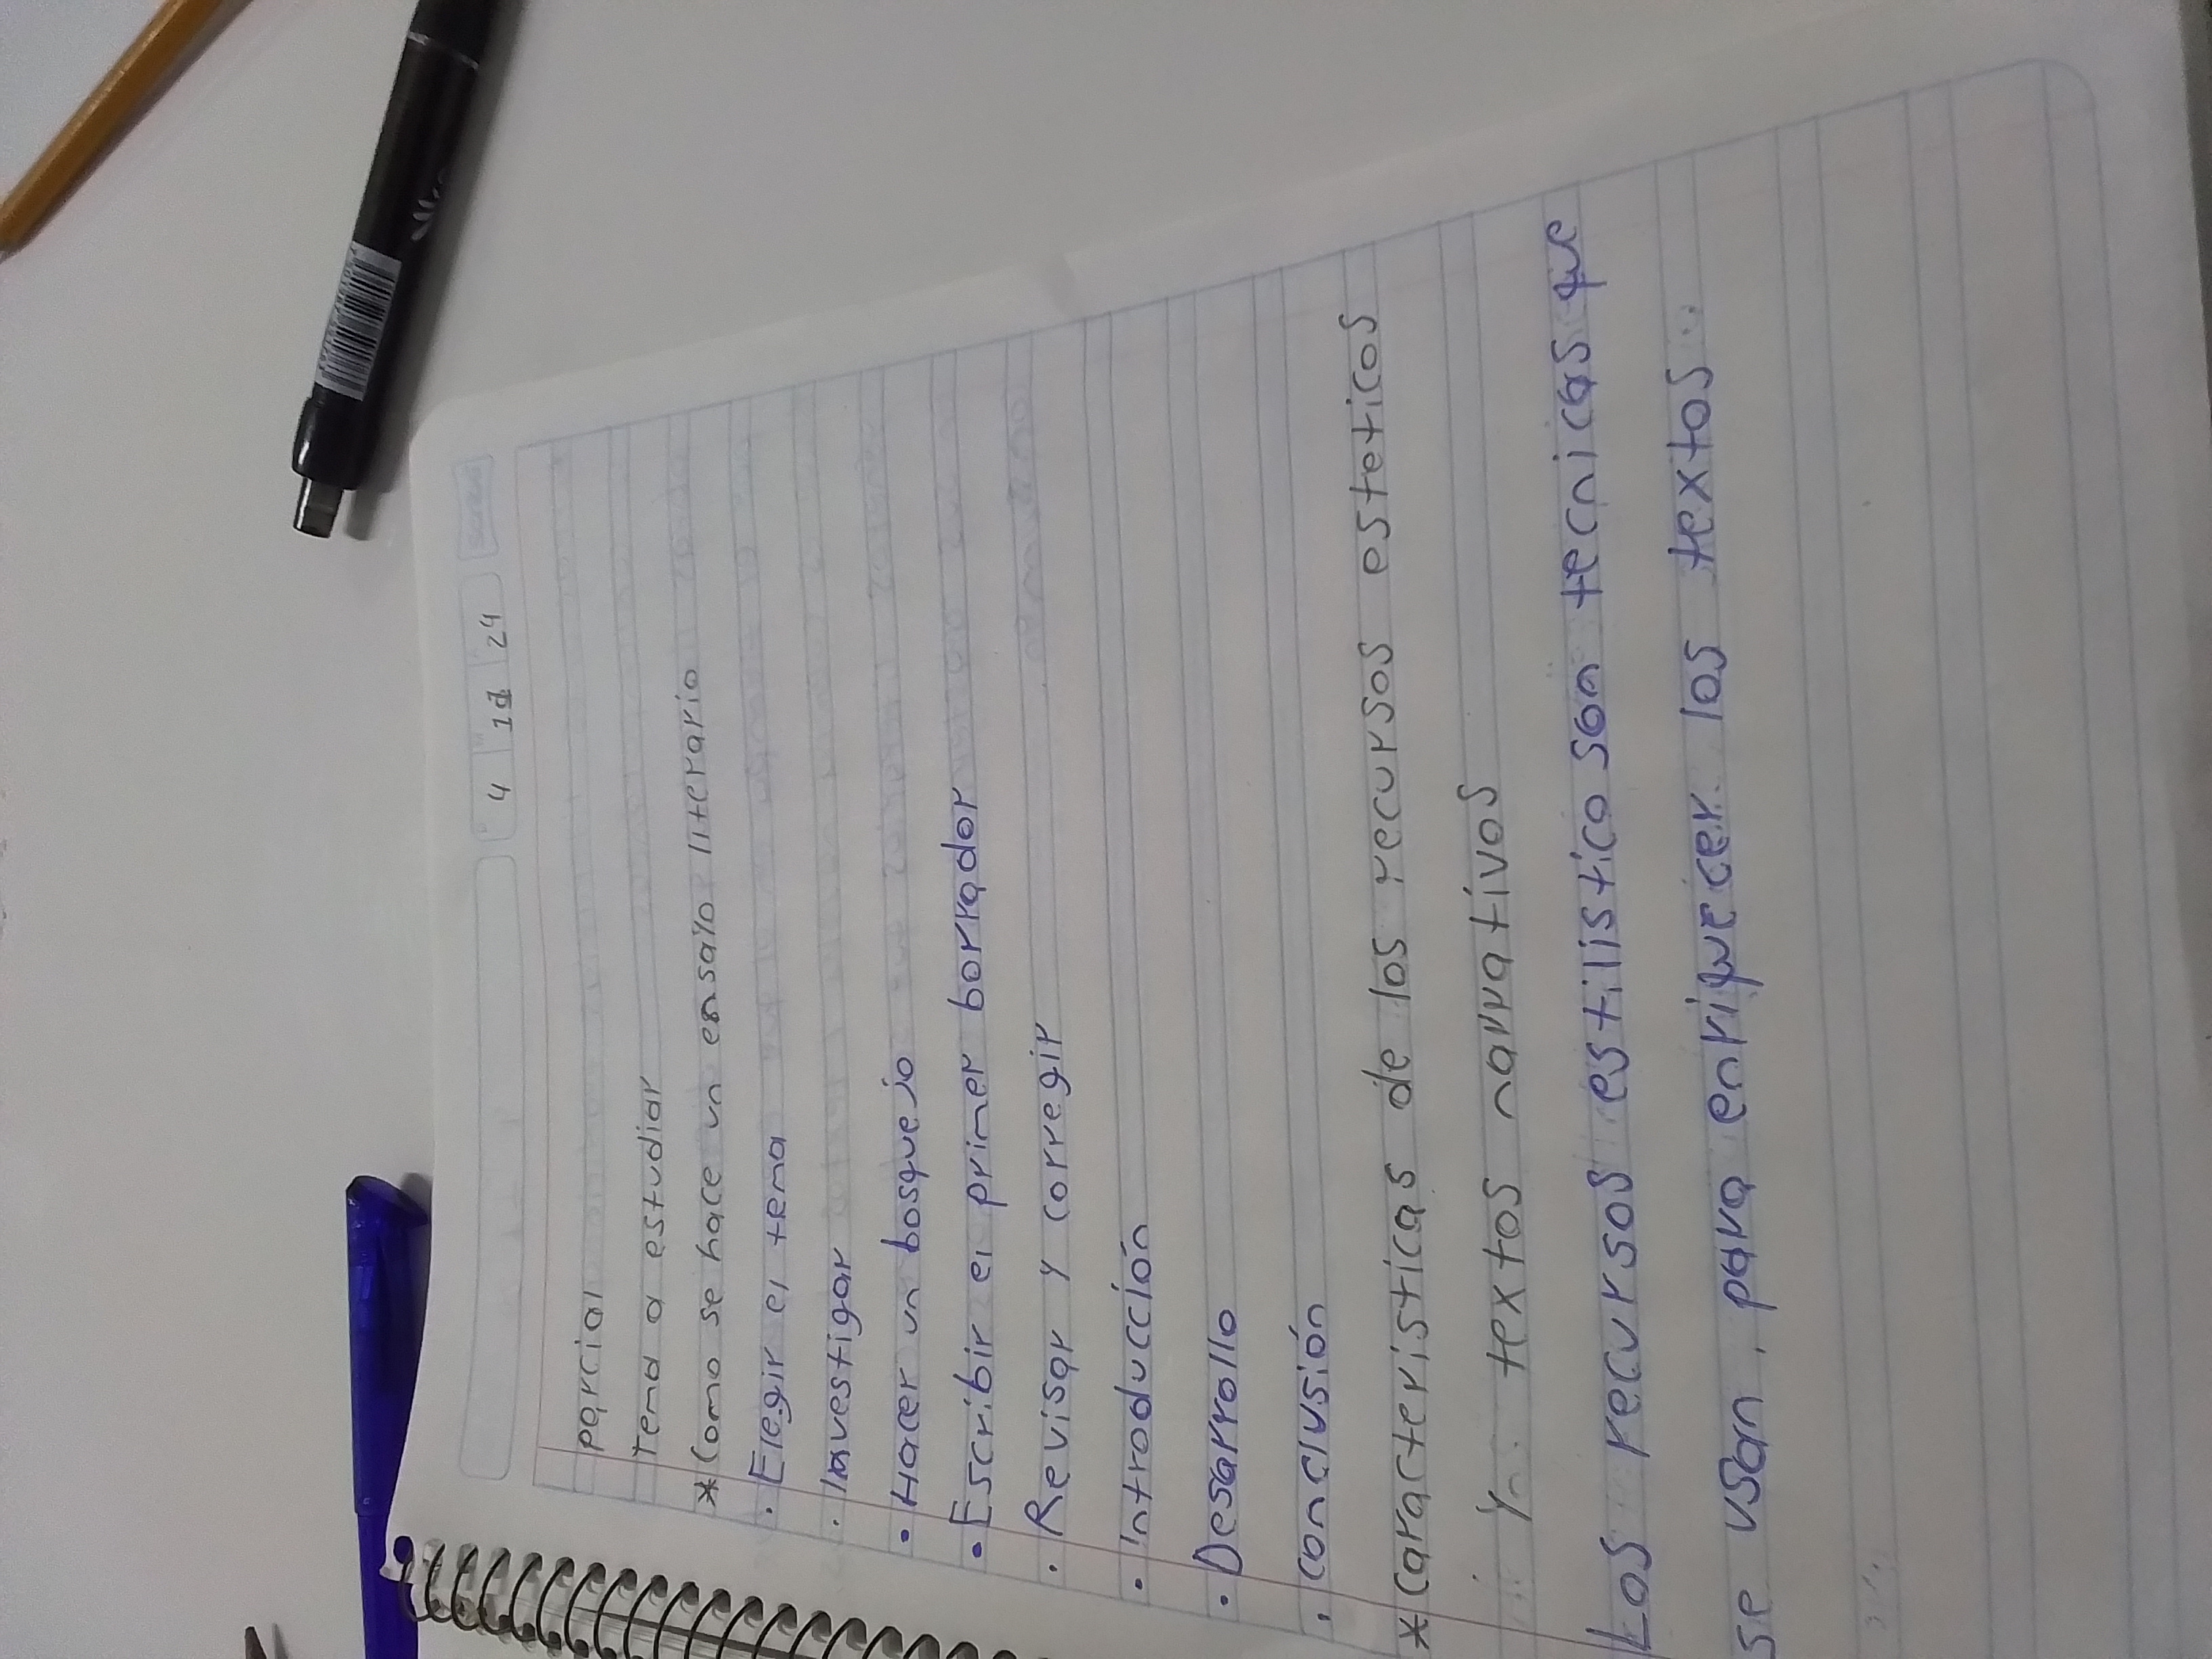 4 11 24
parcial
Tema a estudiar
* Como se hace un ensallo literario
· Elegir el tema
· Investigar
· Hacer un bosquejo
· Escribir el primer borrador
· Revisar y corregir
· Introducción
· Desarrollo
· conclusión
* Caracteristicas de los recursos esteticos
y textos narrativos
Los recursos estilistico son tecnicas que
se usan para enriquecer los textos